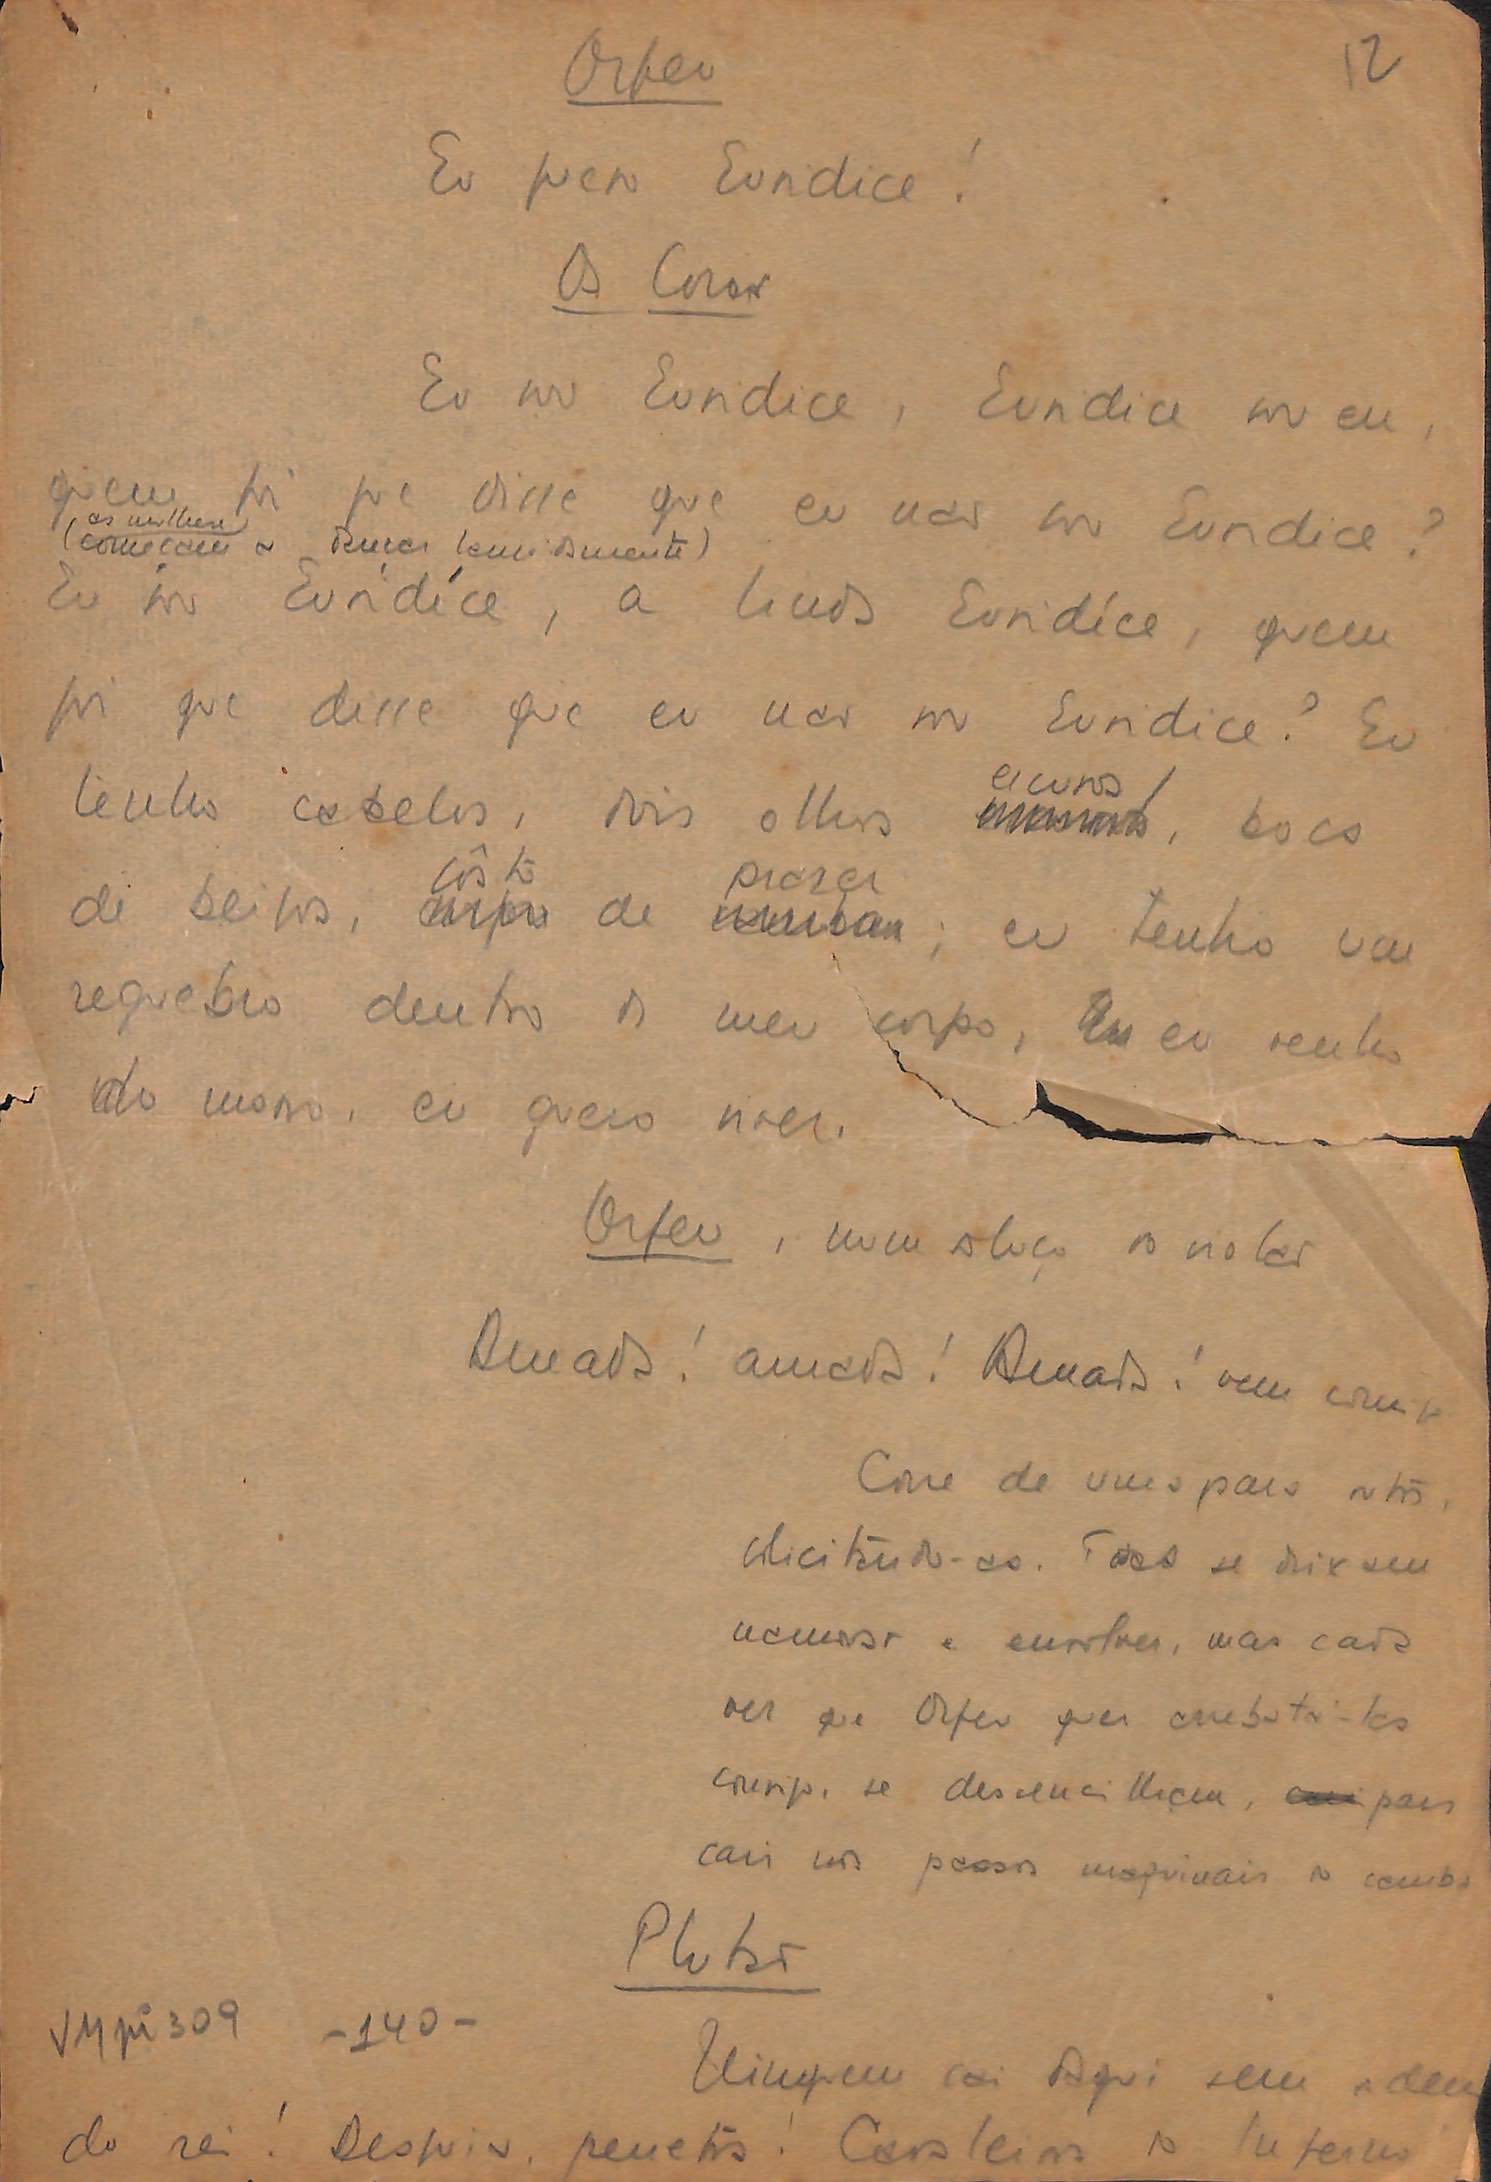 12
Orfeu
Eu quero Eurídice!
O Coro
Eu sou Eurídice, Eurídice sou eu,
quem foi que disse que eu não sou Eurídice?
(as mulheres
começam a dançar lânguidamente)
Eu sou Eurídice, a linda Eurídice, quem
foi que disse que eu não sou Eurídice? Eu
escuros
tenho cabelos, dois olhos, boca
gôsto prazer
de beijos, corpo de; eu tenho um
requebro dentro do meu corpo, eu venho
do morro, eu quero viver.
Orfeu, num soluço do violão
Amada! amada! Amada! vem comigo
Corre de uma para outra,
solicitando-as. Todas se deixam
namorar e envolver, mas cada
vez que Orfeu quer arrebatá-las
consigo, se desvencilham, para
cair nos passos maquinais do samba
Plutão
VMpi309 -140-
Ninguem sai daqui sem ordem
do rei! Despois, peneta! Cavaleiros do Inferno